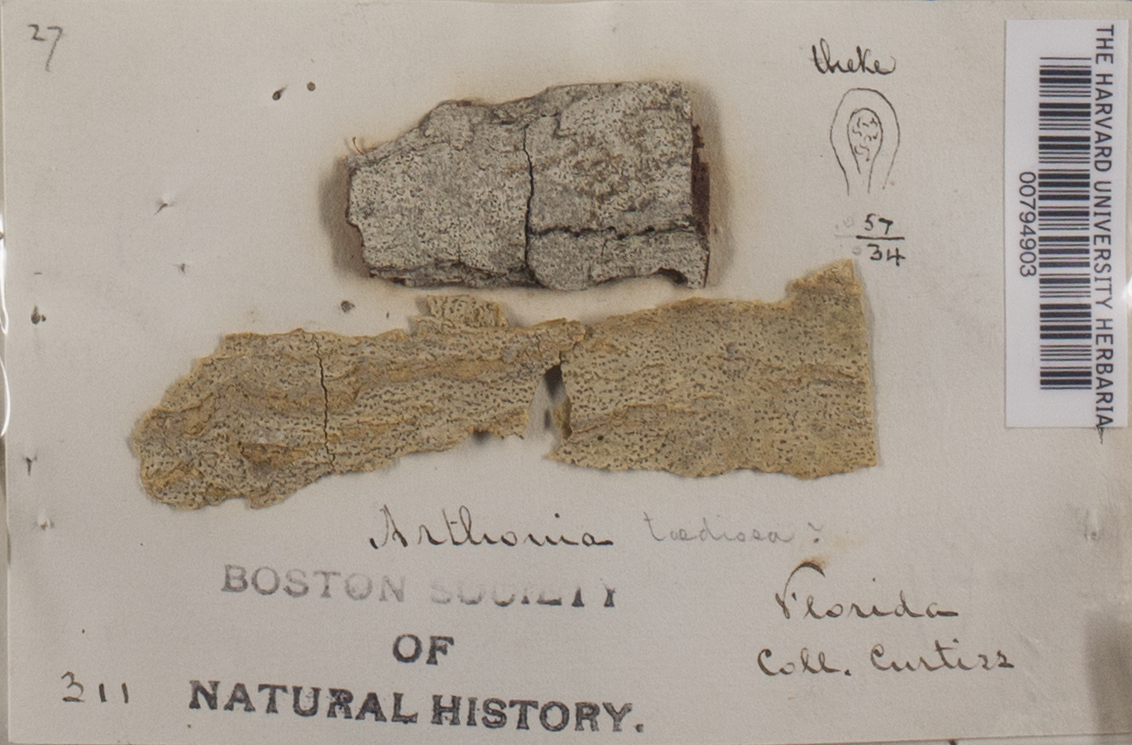 27
theke
57
34
THE HARVARD UNIVERSITY HERBARIA
00794903
Arthonia taediosa?
BOSTON SOCIETY
OF
NATURAL HISTORY.
Florida
Coll. Curtiss
311